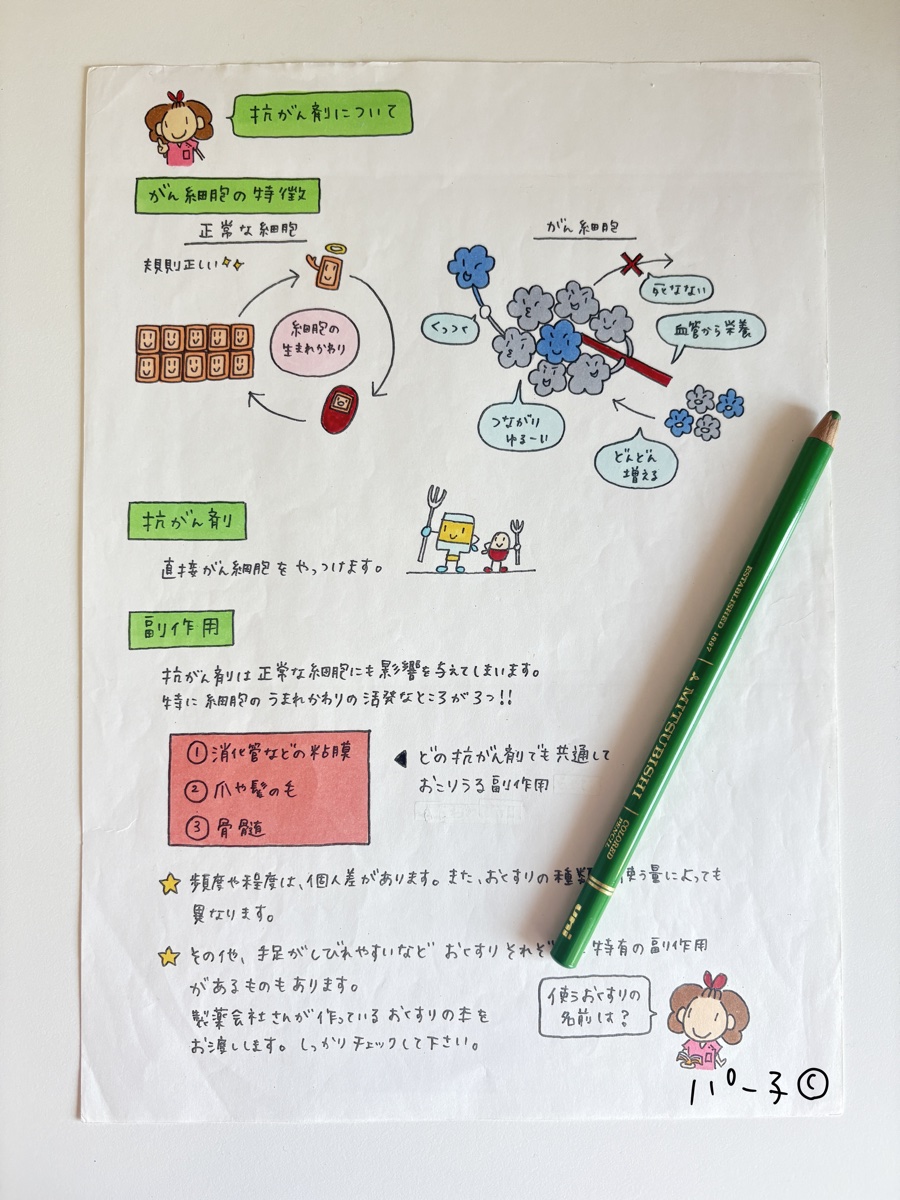 抗がん剤について
がん細胞の特徴
正常な細胞
規則正しい
細胞の
生まれかわり
がん細胞
死なない
くっつく
血管から栄養
つながり
ゆる〜い
どんどん
増える
抗がん剤
直接がん細胞をやっつけます。
副作用
抗がん剤は正常な細胞にも影響を与えてしまいます。
特に細胞のうまれかわりの活発なところが3つ!!
① 消化管などの粘膜
② 爪や髪の毛
③ 骨髄
◀ どの抗がん剤でも共通して
おこりうる副作用
☆ 頻度や程度は、個人差があります。また、おくすりの種類 使う量によっても
異なります。
☆ その他、手足がしびれやすいなど おくすりそれぞ 特有の副作用
があるものもあります。
製薬会社さんが作っているおくすりの本を
お渡しします。しっかりチェックして下さい。
使うおくすりの
名前は?
パー子©
ESTABLISHED 1887
MITSUBISHI
COLORED
PENCIL
uni